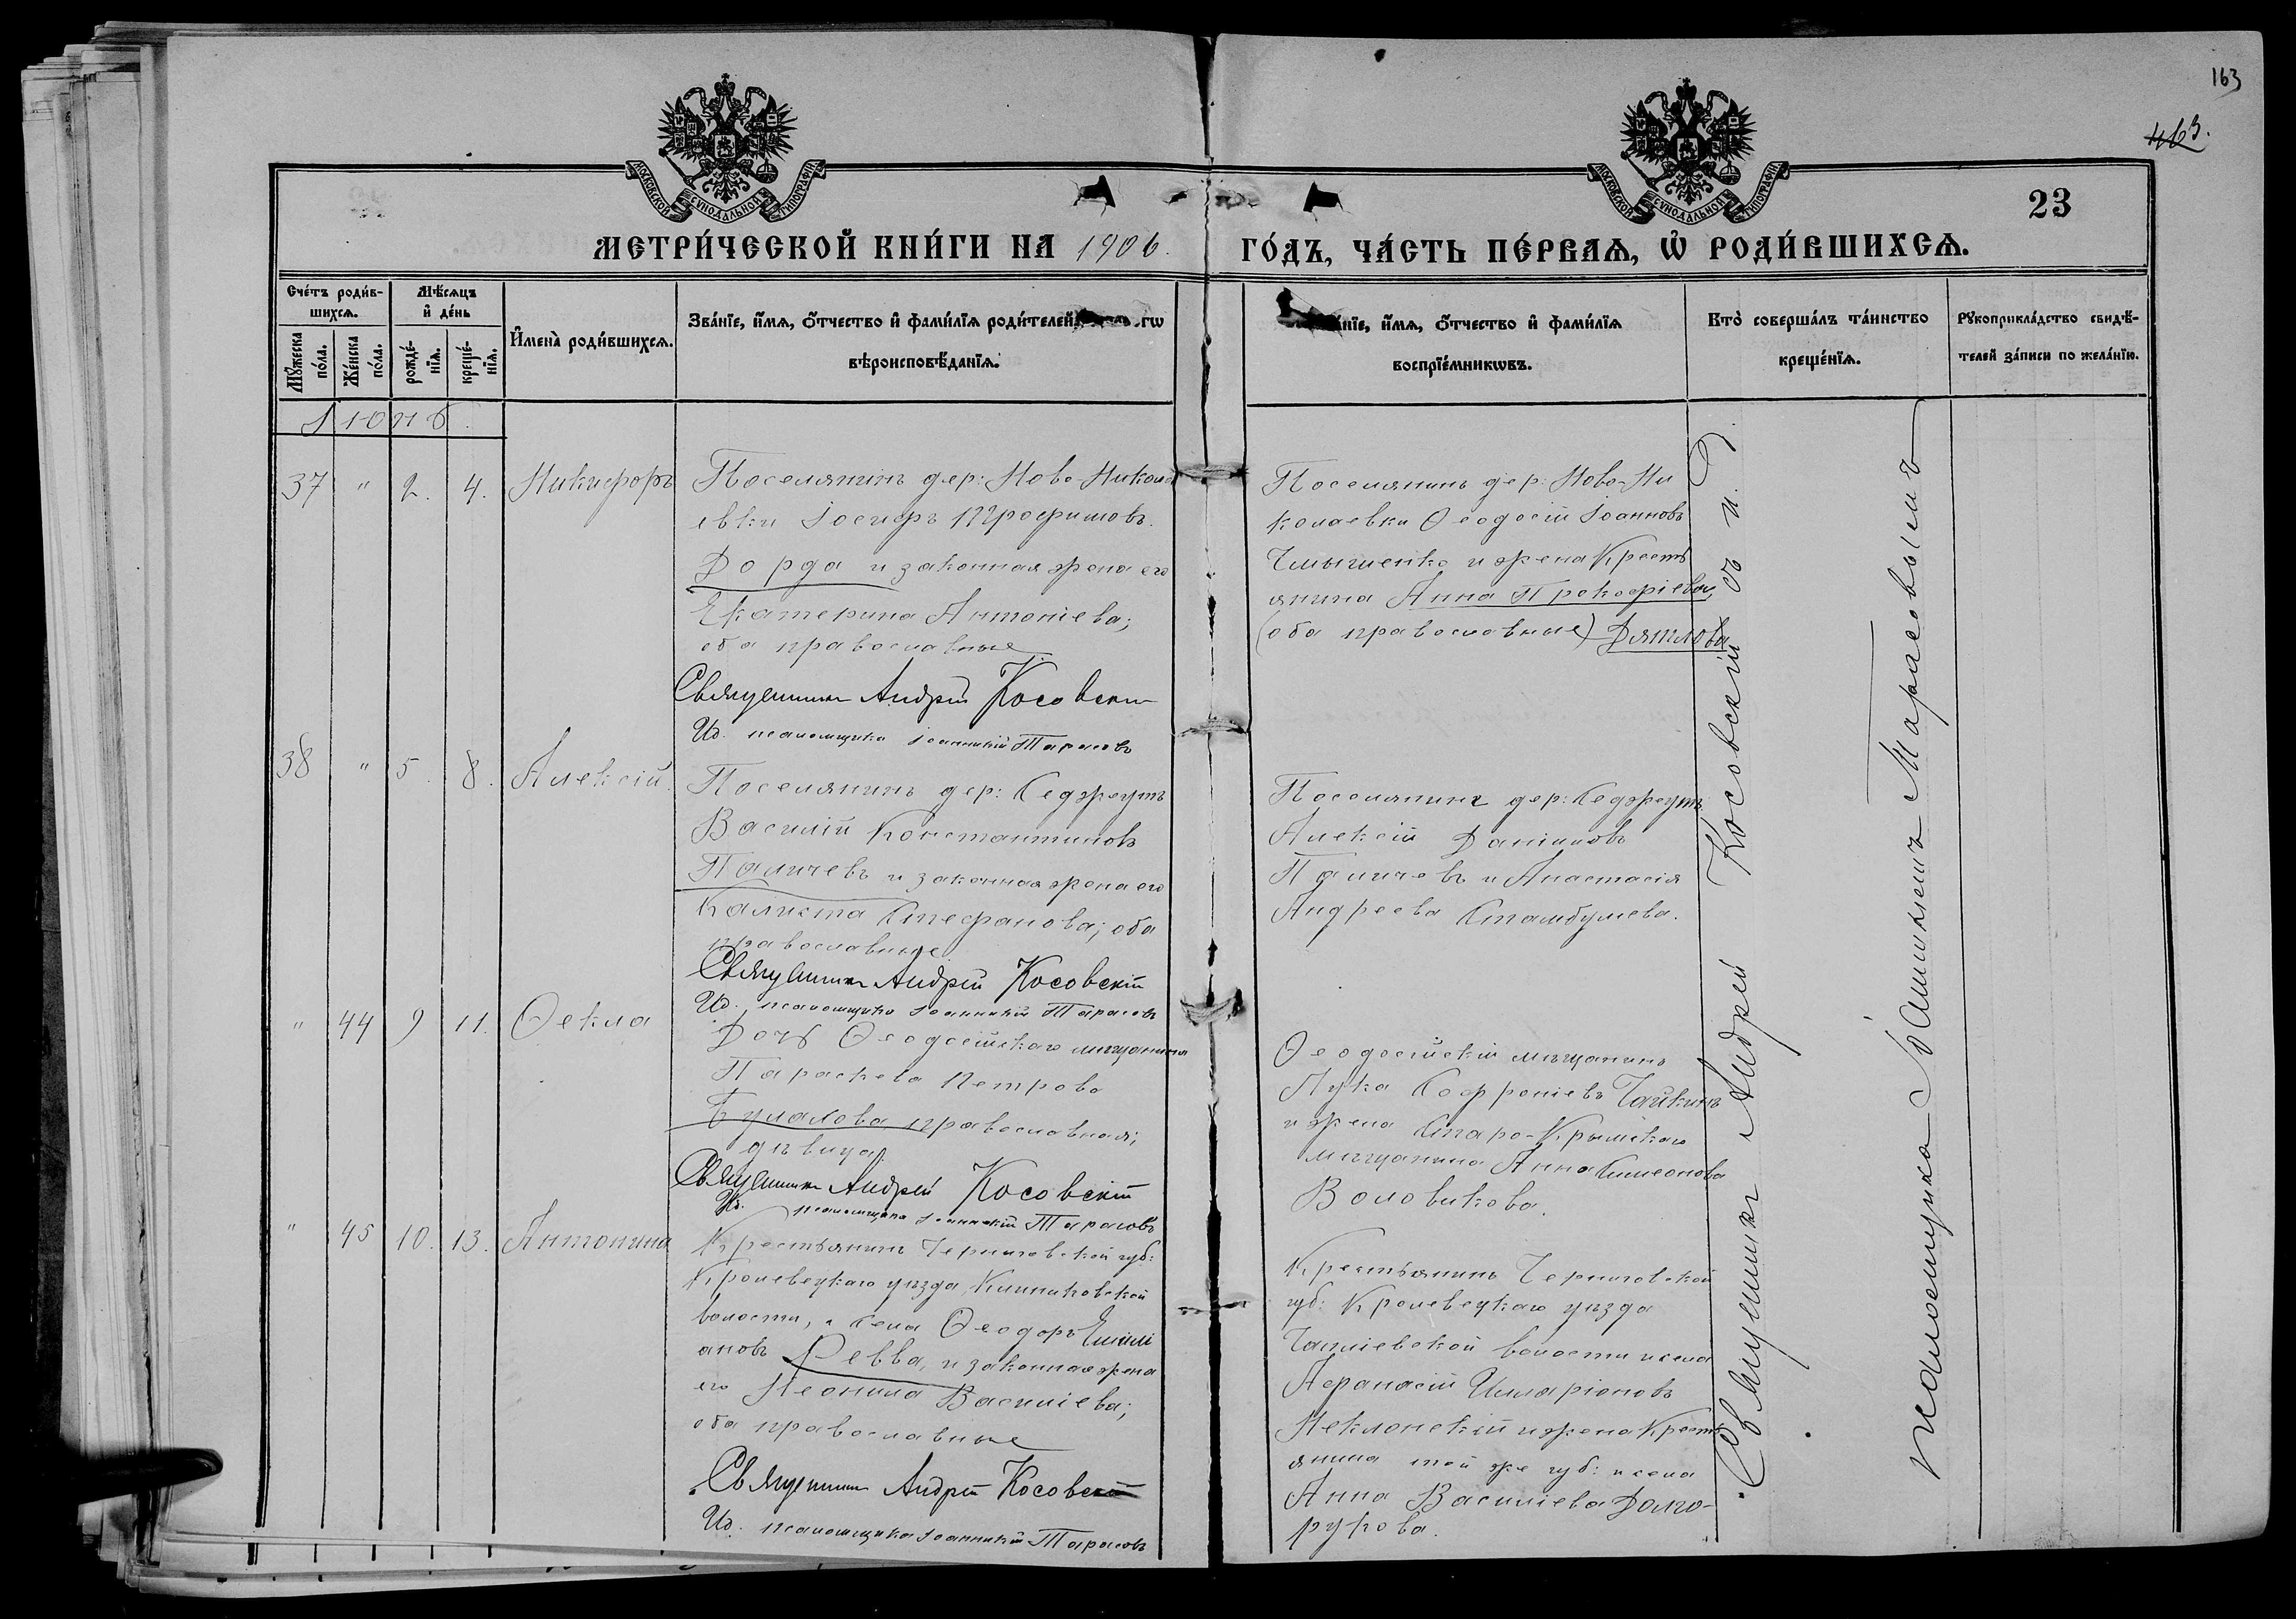 163
463.
МОСКОВСКОЙ СѴНОДАЛЬНОЙ ТИПОГРАФІИ
МОСКОВСКОЙ СѴНОДАЛЬНОЙ ТИПОГРАФІИ
23
МЕТРИ́ЧЕСКОЙ КНИ́ГИ НА 1906.
ГО́ДЪ, ЧА́СТЬ ПЕ́РВАѦ, Ѡ҆ РОДИ́ВШИХСѦ.
Сче́тъ роди́в-
шихсѧ.
Мꙋ́жеска по́ла.
Же́нска по́ла.
Мѣ́сѧцъ
и҆ де́нь
рожде́-
нїѧ.
креще́-
нїѧ.
И҆мена̀ роди́вшихсѧ.
Зва́нїе, и҆́мѧ, ѻ҆́тчество и҆ фами́лїѧ роди́телей, гѡ
вѣроисповѣ́данїѧ.
а́нїе, и҆́мѧ, ѻ҆́тчество и҆ фами́лїѧ
воспрїе́мникѡвъ.
Кто̀ соверша́лъ та́инство
креще́нїѧ.
Рꙋкоприкла́дство свидѣ́-
телей за́писи по жела́нїю.
Іюнь.
37 " 2. 4. Никифоръ
Поселянинъ дер: Ново-Никола
евки Іосифъ Трофимовъ
Дорда и законная жена его
Екатерина Антоніева;
оба православные
Священникъ Андрей Косовскій
Ид. псаломщика Іоанникій Тарасовъ
Поселянинъ дер: Ново-Ни
колаевки Ѳеодосій Іоанновъ
Чмышенко и жена Кресть
янина Анна Прокофіева,
(оба православные) Дятлова
38 " 5. 8. Алексій.
Поселянинъ дер: Седжеутъ
Василій Константиновъ
Паличевъ и законная жена его
Калиста Стефанова; оба
православные
Священникъ Андрей Косовскій
Ид. псаломщика Іоанникій Тарасовъ
Поселянинъ дер: Седжеутъ
Алексій Даніиловъ
Паличевъ и Анастасія
Андреева Стамбулева.
" 44 9 11. Ѳекла
Дочь Ѳеодосійскаго мѣщанина
Параскева Петрова
Булахова православная;
дѣвица.
Священникъ Андрей Косовскій
Ид. псаломщика Іоанникій Тарасовъ
Ѳеодосійскій мѣщанинъ
Лука Софроніевъ Чайкинъ
и жена Старо-Крымскаго
мѣщанина Анна Симеонова
Воловикова.
" 45 10. 13. Антонина
Крестьянинъ Черниговской губ:
Кролевецкаго уѣзда,
волости, и села Ѳеодоръ Емилі
ановъ Ревва, и законная жена
его Леонила Василіева;
оба православные
Священникъ Андрей Косовскій
Ид. псаломщика Іоанникій Тарасовъ
Крестьянинъ Черниговской
губ: Кролевецкаго уѣзда
волости и села
Аѳанасій Иларіоновъ
Неклонскій и жена Кресть
янина той же губ: и села
Анна Василіева Долго-
рукова.
Священникъ Андрей Косовскій съ и. д.
псаломщика Іоанникіемъ Тарасовымъ